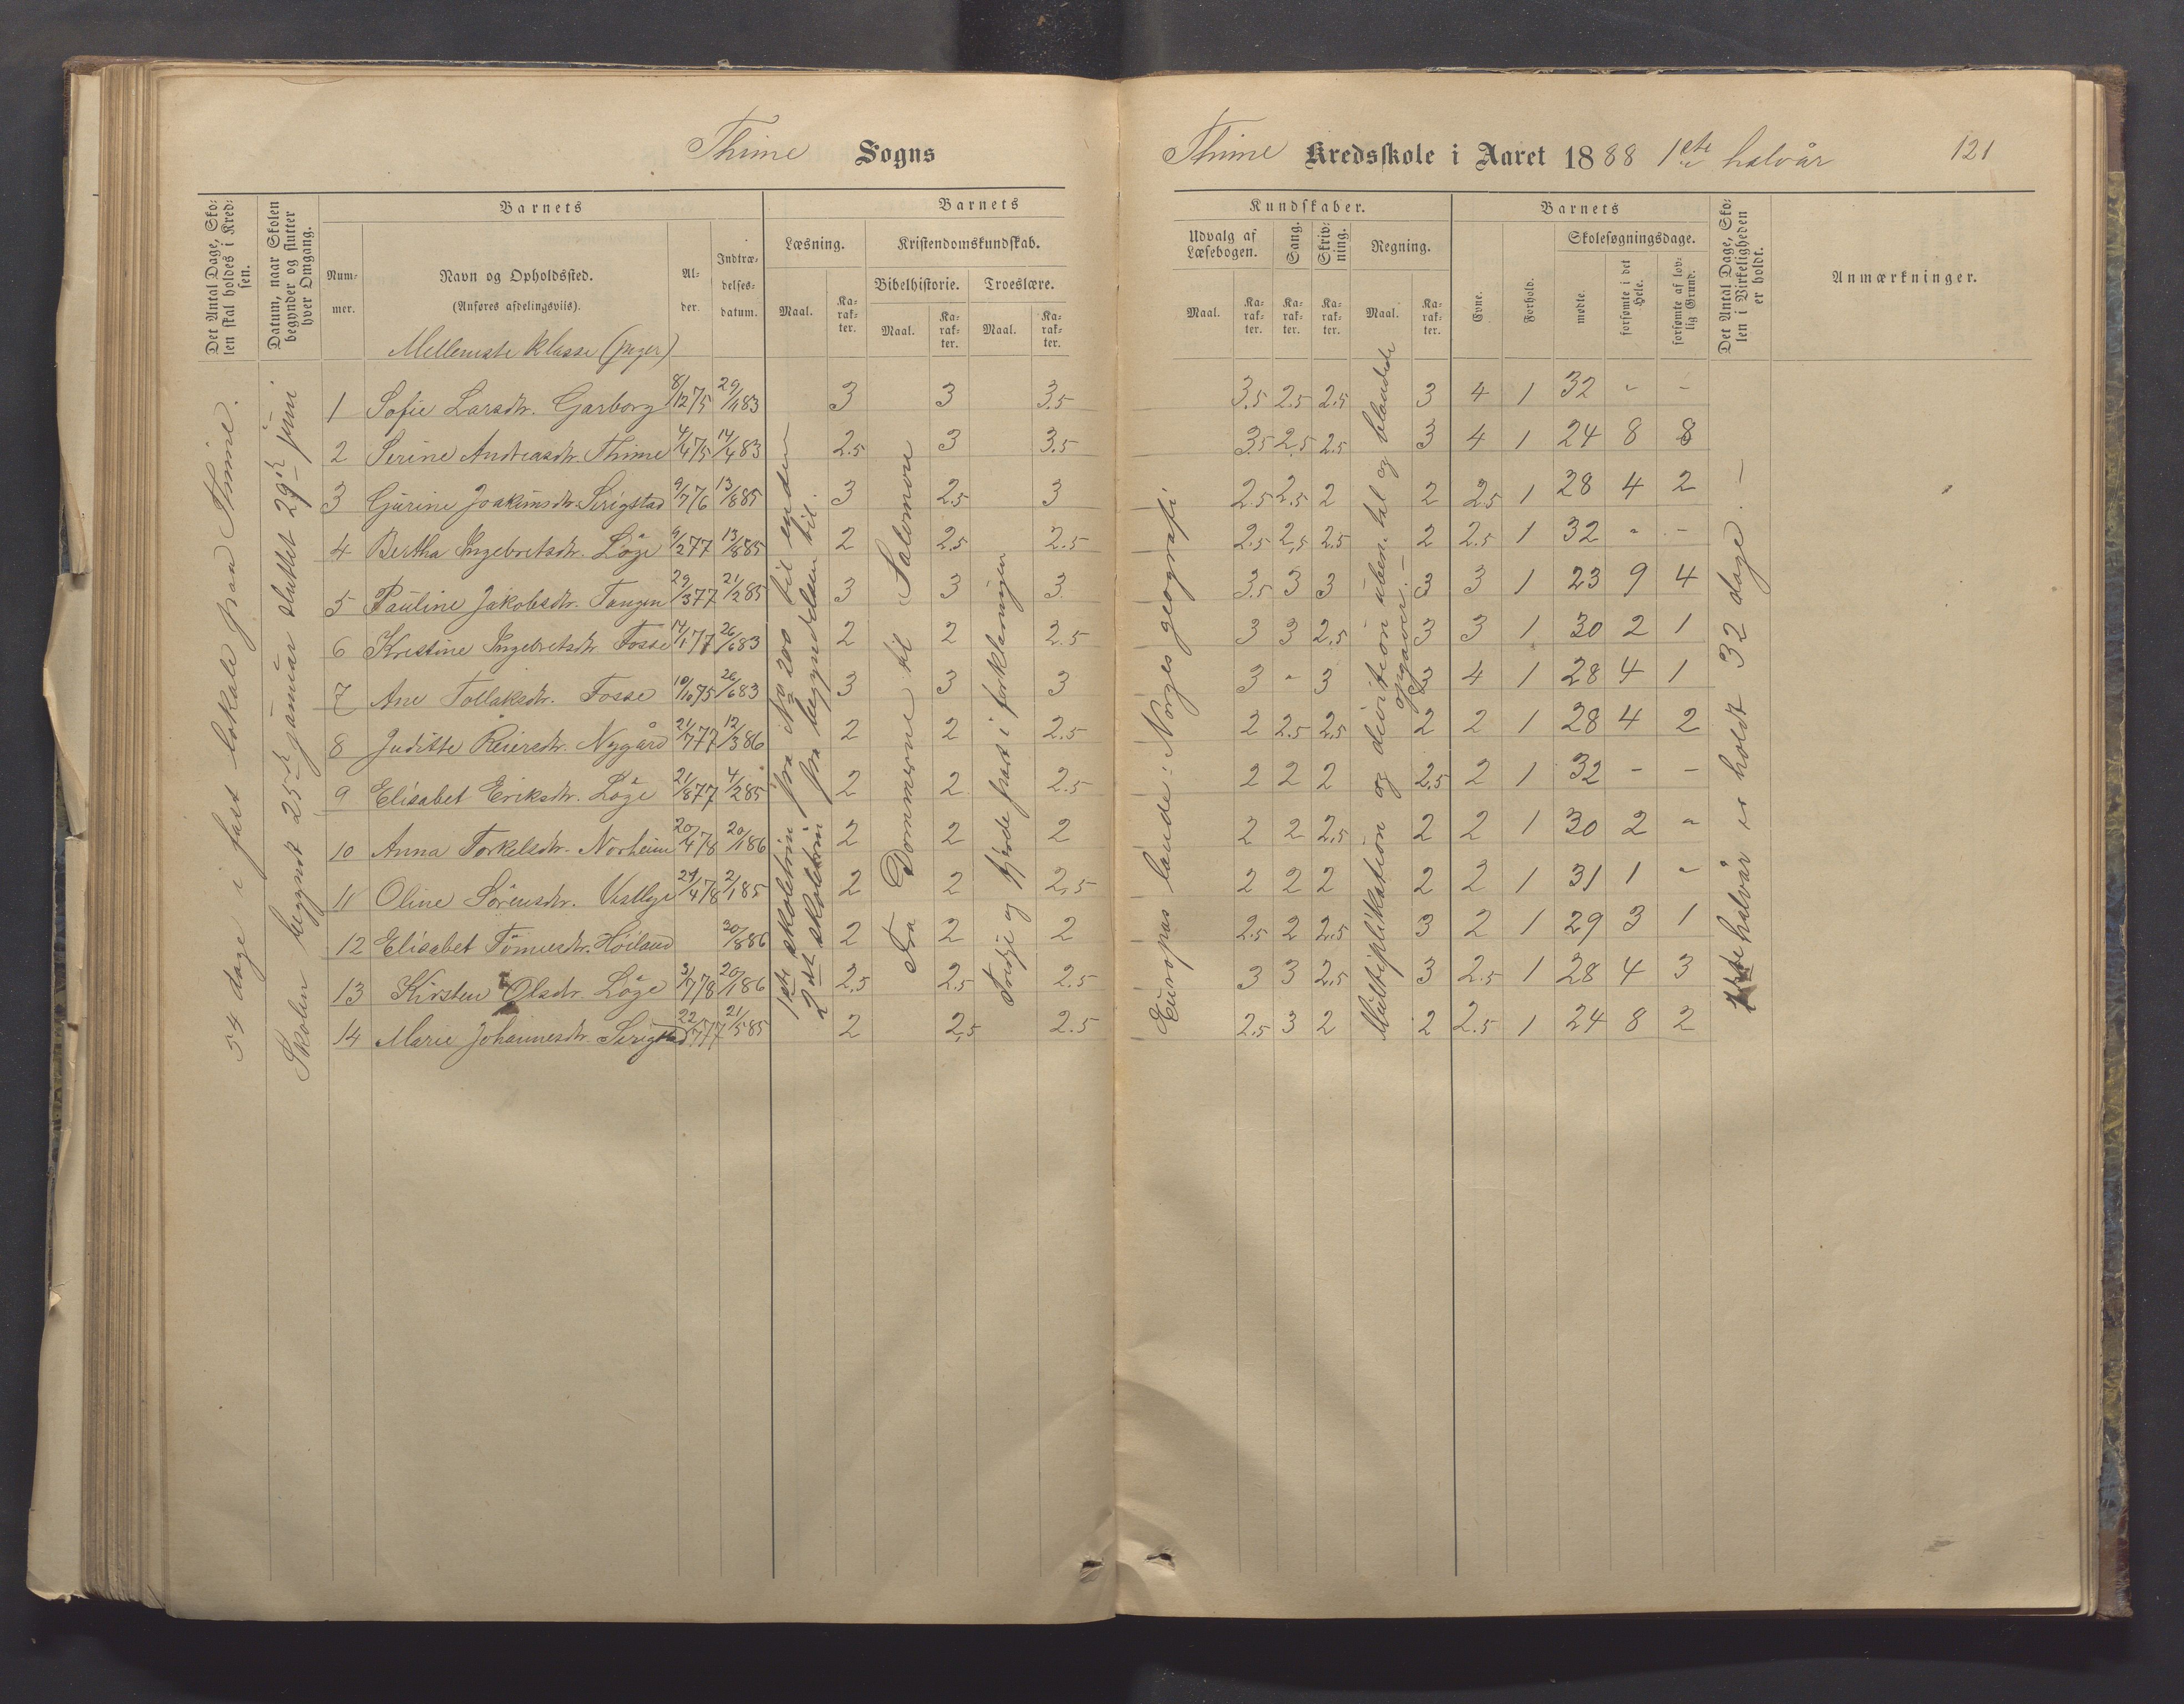 Thime Sogns
Thime Kredsskole i Aaret 1888 1ste halvår 121
Det Antal Dage, Skolen skal holdes i Kredsen.
Datum, naar Skolen begynder og slutter hver Omgang.
Barnets
Nummer.
Navn og Opholdssted.
(Anføres afdelingsviis).
Alder.
Indtrædelsesdatum.
Barnets
Læsning.
Maal.
Karakter.
Kristendomskundskab.
Bibelhistorie.
Maal.
Karakter.
Troeslære.
Maal.
Karakter.
Kundskaber.
Udvalg af Læsebogen.
Maal.
Karakter.
Sang.
Karakter.
Skrivning.
Karakter.
Regning.
Maal.
Karakter.
Barnets
Evne.
Forhold.
Skolesøgningsdage.
mødte.
forsømte i det Hele.
forsømte af lovlig Grund.
Det Antal Dage, Skolen i Virkeligheden er holdt.
Anmærkninger.
Mellemste klasse (piger)
34 dage i fast lokale paa Thime.
Skolen begyndt 25de januar sluttet 29de juni
1ste skoletrin fra No 200 til enden
2det skoletrin fra begyndelsen til.
Fra Dommerne til Salomon
Tredje og fjerde part i forklaringen
Europas lande: Norges geografi
Multiplikation og division uben. tal og blandede opgaver.
1ste halvår er holdt 32 dage.
1 Sofie Larsdtr. Garborg 8/12 75 29/11 83 3 3 3.5 3.5 2.5 2.5 3 4 1 32 " -
2 Serine Andreasdtr. Thime 4/4 75 14/4 83 2.5 3 3.5 3.5 2.5 2.5 3 4 1 24 8 8
3 Gurine Joakimsdtr. Serigstad 9/7 76 13/8 85 3 2.5 3 2.5 2.5 2 2 2.5 1 28 4 2
4 Bertha Ingebretsdtr. Löge 9/2 77 13/8 85 2 2.5 2.5 2.5 2.5 2.5 2 2.5 1 32 " -
5 Pauline Jakobsdtr. Tangen 29/3 77 21/2 85 3 3 3 3.5 3 3 3 3 1 23 9 4
6 Kristine Ingebretsdtr. Fosse 17/1 77 26/6 83 2 2 2.5 3 3 2.5 3 3 1 30 2 1
7 Ane Tollaksdtr. Fosse 10/10 75 26/6 83 3 3 3 3 " 3 3 4 1 28 4 1
8 Juditte Reiersdtr. Nygård 21/7 77 12/3 86 2 2 2.5 2 2.5 2.5 2 2 1 28 4 2
9 Elisabet Eriksdtr. Löge 21/8 77 4/2 85 2 2 2.5 2 2 2 2.5 2 1 32 - -
10 Anna Torkelsdtr. Norheim 20/4 78 20/1 86 2 2 2 2 2 2.5 2 2 1 30 2 "
11 Oline Sörensdtr. Vestlye 24/4 78 2/1 85 2 2 2.5 2 2 2 2 2 1 31 1 "
12 Elisabet Tönnesdtr. Höiland 20/8 86 2 2 2 2.5 2 2.5 3 2 1 29 3 1
13 Kirsten Olsdtr. Löge 3/7 78 20/1 86 2.5 2.5 2.5 3 3 2.5 3 2.5 1 28 4 3
14 Marie Johannesdtr. Serigstad 22/7 77 21/5 85 2 2.5 2.5 2.5 3 2 2 2.5 1 24 8 2